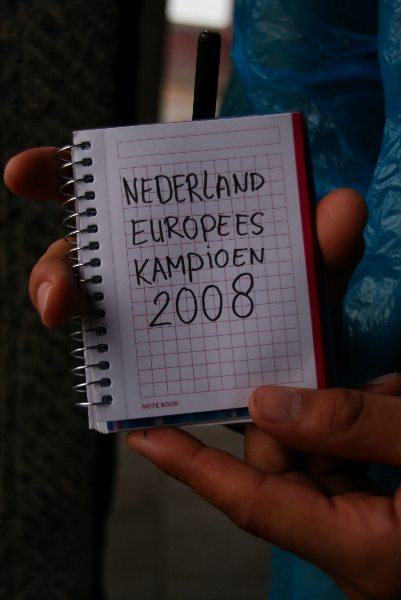 NEDERLAND
EUROPEES
KAMPIOEN
2008
NOTE BOOK